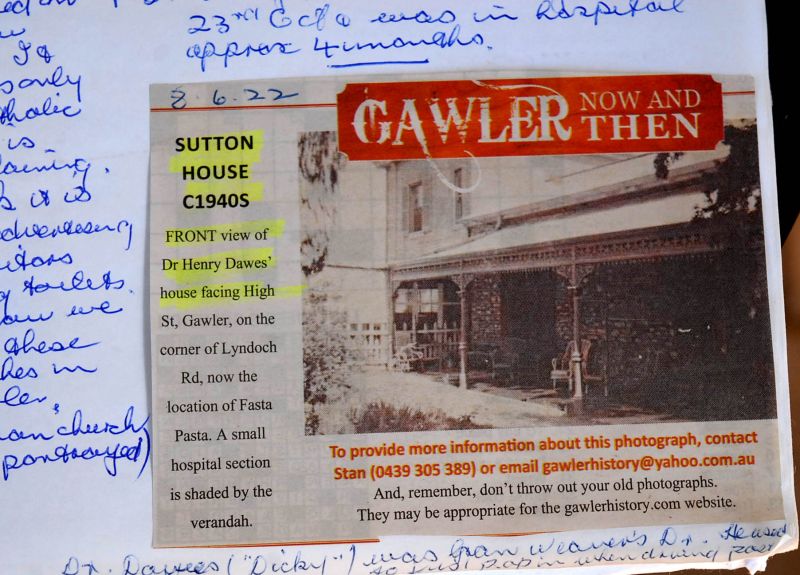 23rd Oct & was in hospital
approx 4 months.
only
tholic
is
it is
itors
toilets.
we
these
in
church
portrayed)
8.6.22
GAWLER NOW AND THEN
SUTTON
HOUSE
C1940S
FRONT view of
Dr Henry Dawes'
house facing High
St, Gawler, on the
corner of Lyndoch
Rd, now the
location of Fasta
Pasta. A small
hospital section
is shaded by the
verandah.
To provide more information about this photograph, contact
Stan (0439 305 389) or email gawlerhistory@yahoo.com.au
And, remember, don't throw out your old photographs.
They may be appropriate for the gawlerhistory.com website.
Dr. Dawes ("Dicky") was Gran Weaver's Dr. He used
to just pop in when driving past